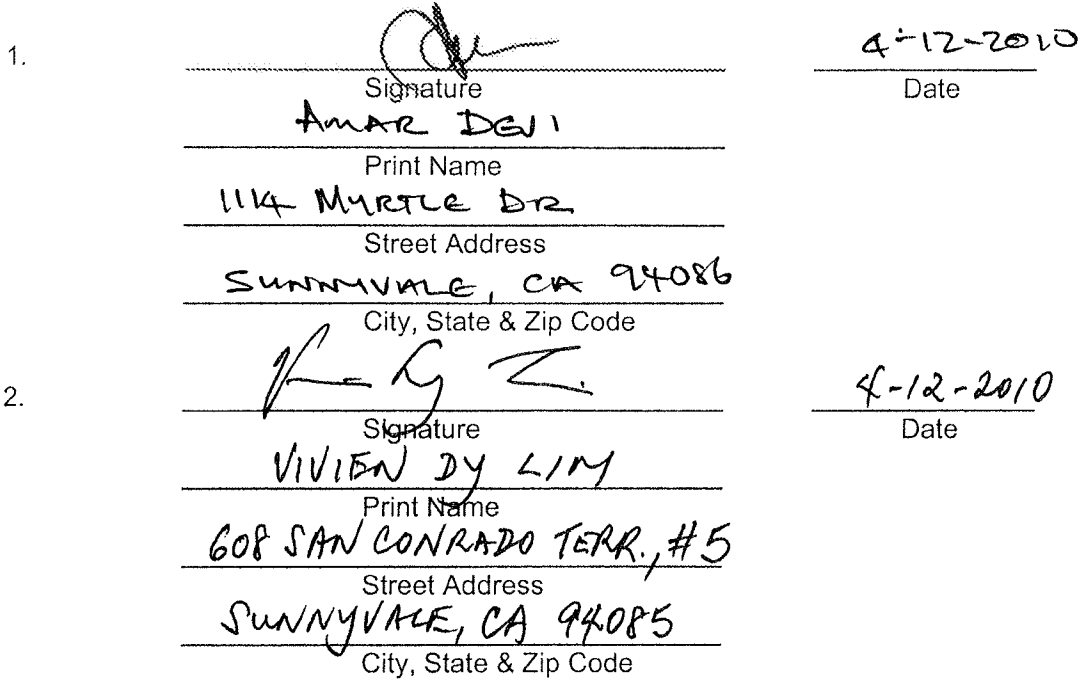 1. 4-12-2010
Signature Date
AMAR DEVI
Print Name
1114 MYRTLE DR
Street Address
SUNNYVALE, CA 94086
City, State & Zip Code
2. 4-12-2010
Signature Date
VIVIEN DY LIM
Print Name
608 SAN CONRADO TERR., #5
Street Address
SUNNYVALE, CA 94085
City, State & Zip Code